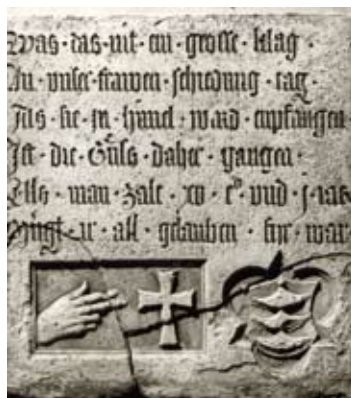 Was · das · nit · ein · grosse · klag ·
An · unser · frawen · schiedung · tag ·
Als · sie · in · himel · ward · enpfangen
Ist · die · Güls · daher · gangen ·
Als · man · zalt · xv · cᵒ · vnd · j · iar
Mügt · ir · all · gelauben · fur · war